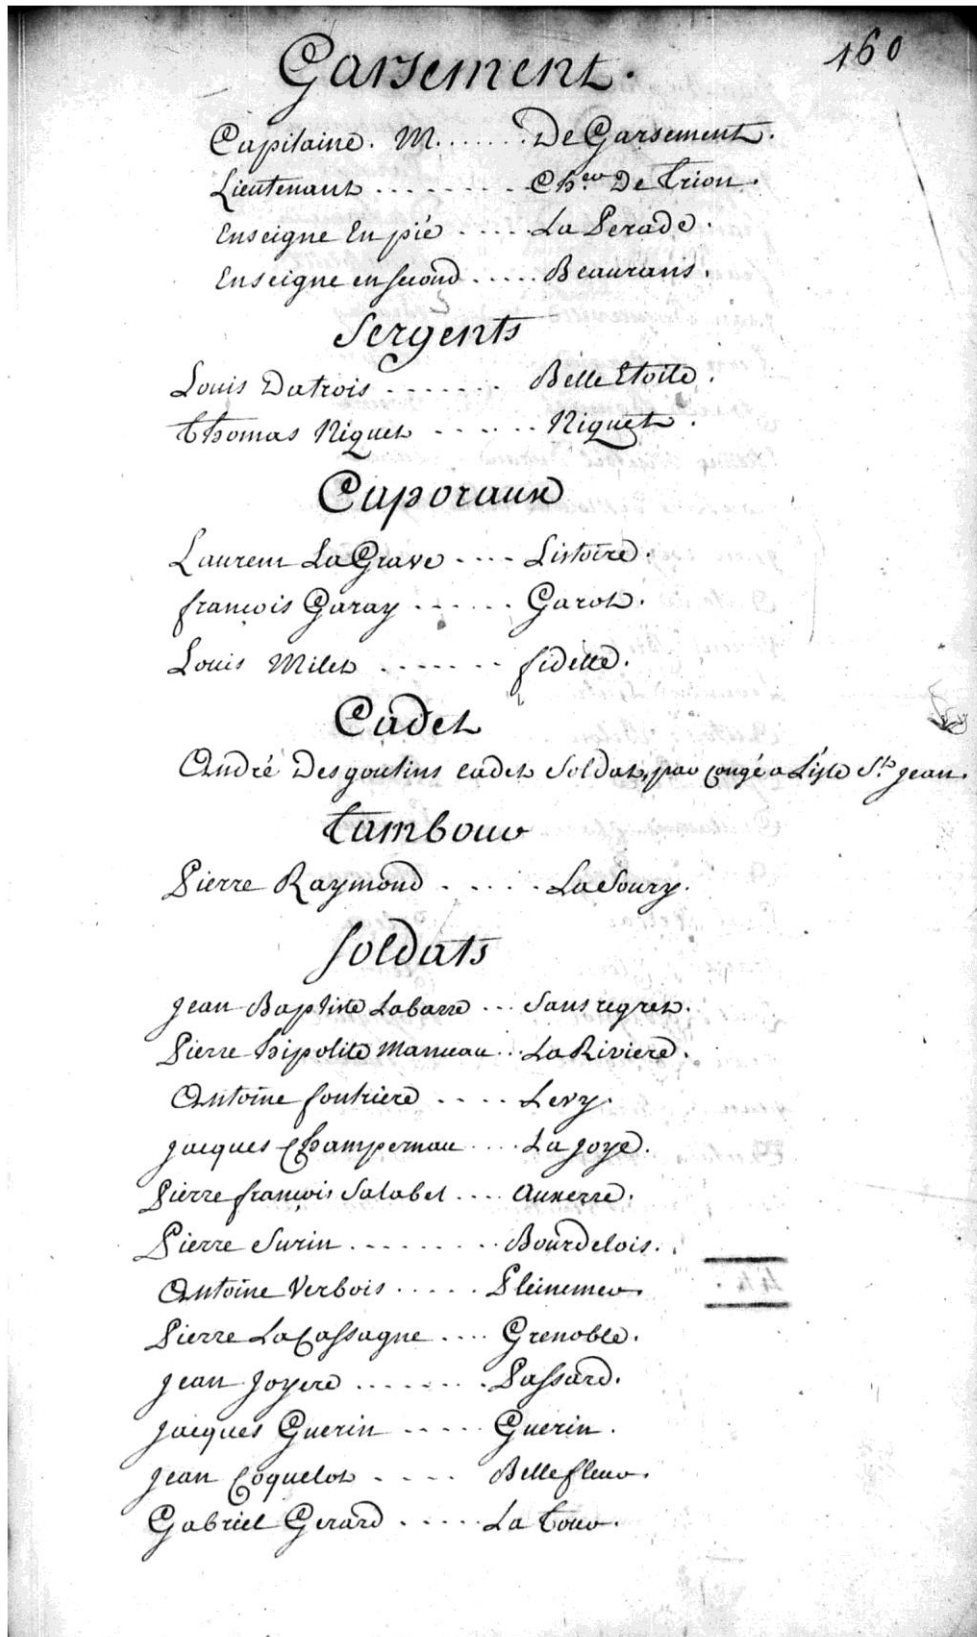 160
Garsement.
Capitaine. M. ...... De Garsement.
Lieutenant ........ Ch.er De Trion.
Enseigne En pié ..... La Perade.
Enseigne en second ..... Beaurans.
Sergents
Louis Datrois ....... Belle Etoile.
Thomas Niquet ...... Niquet.
Caporaux
Laurent La Grave .... Listoire.
francois Garay ...... Garot.
Louis Milet ....... fidelle.
Cadet
André Desgoutins cadet Soldat, par congé a L'isle S.t Jean.
Tambour
Pierre Raymond ..... La Soury.
Soldats
Jean Baptiste Labarre ... Sans regret.
Pierre hipolite Manueau ... La Riviere.
Antoine foutriere .... Levy.
Jacques Champernau .... La Joye.
Pierre francois Salabet .... Auxerre.
Pierre Surin ......... Bourdelois.
Antoine Verbois ..... Pleinemer.
Pierre La Cassagne .... Grenoble.
Jean Joyere ........ Passard.
Jacques Guerin ..... Guerin.
Jean Coquelot .... Belle fleur.
Gabriel Gerard ..... La Tour.